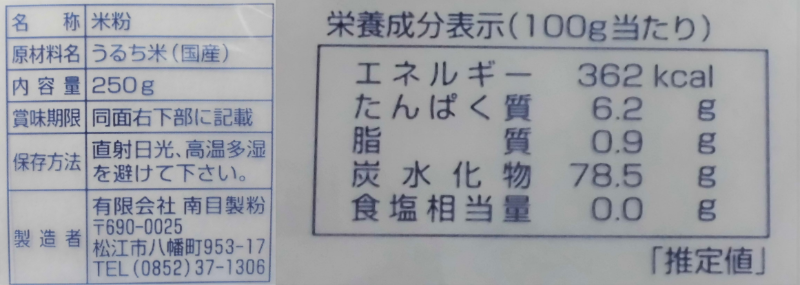 名称 米粉
原材料名 うるち米(国産)
内容量 250g
賞味期限 同面右下部に記載
保存方法 直射日光、高温多湿
を避けて下さい。
製造者 有限会社 南目製粉
〒690-0025
松江市八幡町953-17
TEL(0852)37-1306
栄養成分表示(100g当たり)
エネルギー 362 kcal
たんぱく質 6.2 g
脂質 0.9 g
炭水化物 78.5 g
食塩相当量 0.0 g
「推定値」